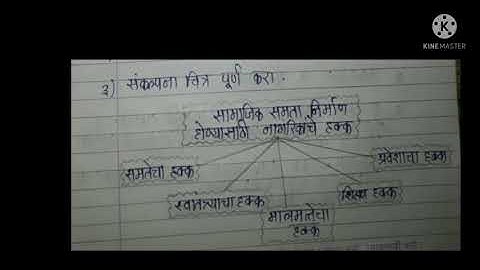 KINEMASTER
३) संकल्पना चित्र पूर्ण करा.
सामाजिक समता निर्माण
होण्यासाठी नागरिकांचे हक्क
समतेचा हक्क
स्वातंत्र्याचा हक्क
मालमत्तेचा
हक्क
शिक्षण हक्क
प्रवेशाचा हक्क